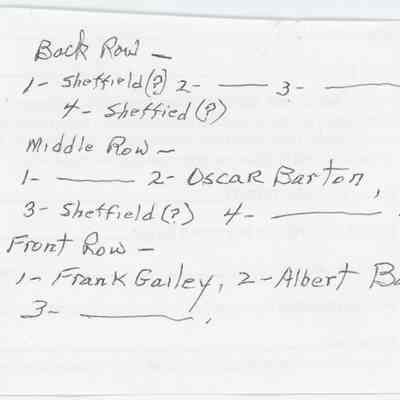 Back Row —
1- Sheffield(?) 2- —— 3- ——
4- Sheffied(?)
Middle Row —
1- —— 2- Oscar Barton,
3- Sheffield(?) 4- ——
Front Row —
1- Frank Gailey, 2- Albert Ba
3- ——,